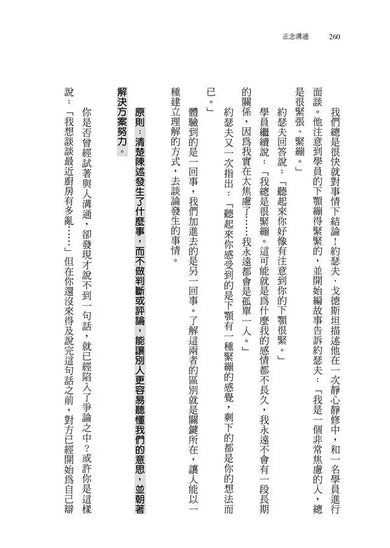 正念溝通
260
我們總是很快就對事情下結論！約瑟夫．戈德斯坦描述他在一次靜心靜修中，和一名學員進行
面談。他注意到學員的下顎繃得緊緊的，並開始編故事告訴約瑟夫：「我是一個非常焦慮的人，總
是很緊張、緊繃。」
約瑟夫回答說：「聽起來你好像有注意到你的下顎很緊。」
學員繼續說：「我總是很緊繃。這可能就是為什麼我的感情都不長久，我永遠不會有一段長期
的關係，因為我實在太焦慮了……我永遠都會是孤單一人。」
約瑟夫又一次指出：「聽起來你感受到的是下顎有一種緊繃的感覺，剩下的都是你的想法而
已。」
體驗到的是一回事，我們加進去的是另一回事。了解這兩者的區別就是關鍵所在，讓人能以一
種建立理解的方式，去談論發生的事情。
原則：清楚陳述發生了什麼事，而不做判斷或評論，能讓別人更容易聽懂我們的意思，並朝著
解決方案努力。
你是否曾經試著與人溝通，卻發現才說不到一句話，就已經陷入了爭論之中？或許你是這樣
說：「我想談談最近廚房有多亂……」但在你還沒來得及說完這句話之前，對方已經開始為自己辯